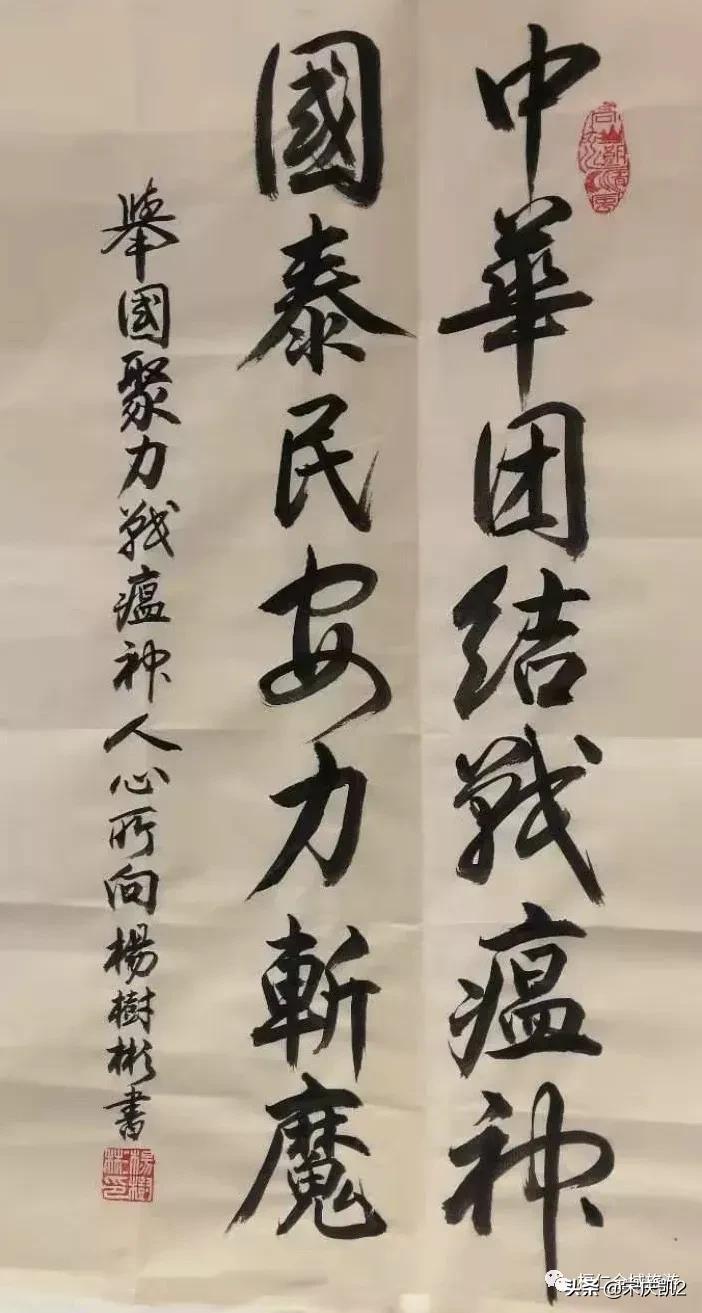 中華团结戰瘟神
國泰民安力斬魔
舉國聚力戰瘟神人心所向楊樹彬書
头条@荣庆凯2